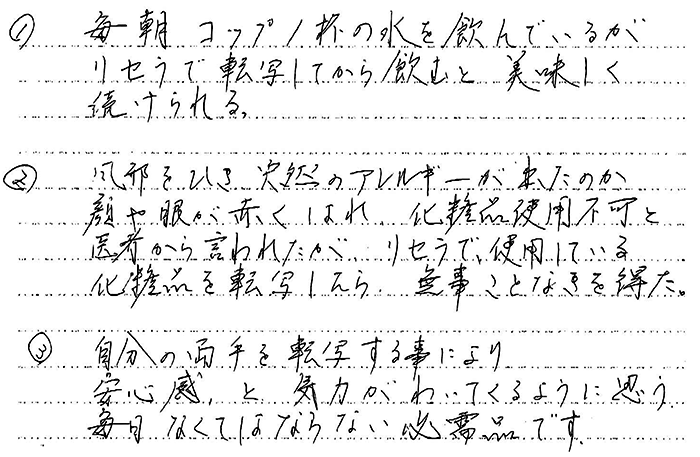 ① 毎朝 コップ1杯の水を飲んでいるが
リセラで転写してから飲むと 美味しく
続けられる。
② 風邪をひき 突然のアレルギーが出たのか
顔や眼が赤くはれ、化粧品使用不可と
医者から言われたが、リセラで、使用している
化粧品を転写したら、無事ことなきを得た。
③ 自分の両手を転写する事により
安心感、と 気力がわいてくるように思う
毎日なくてはならない必需品です。